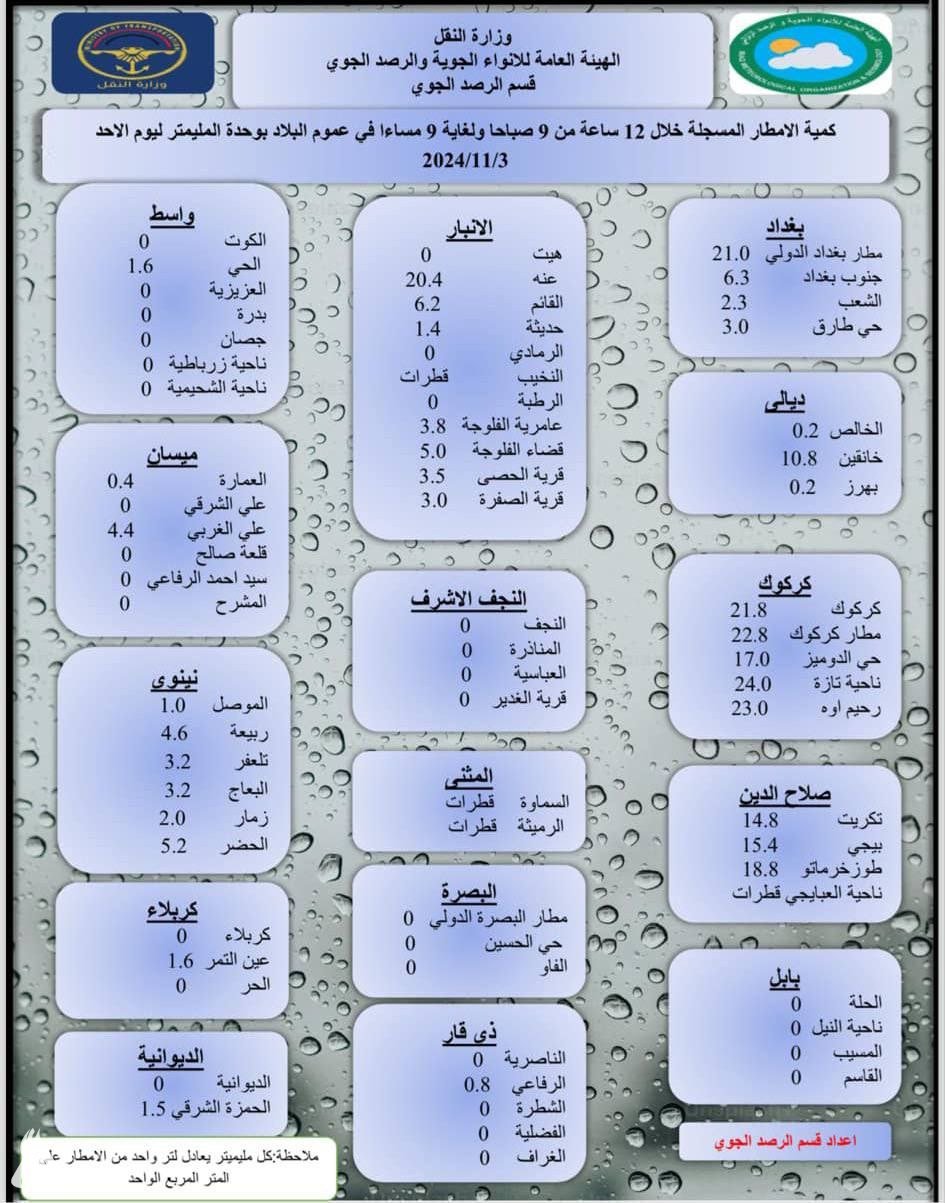 وزارة النقل
الهيئة العامة للانواء الجوية والرصد الجوي
قسم الرصد الجوي
MINISTRY OF TRANSPORTATION
وزارة النقل
الهيئة العامة للانواء الجوية و الرصد الزلزالي
IRAQ METEOROLOGICAL ORGANIZATION & SEISMOLOGY
كمية الامطار المسجلة خلال 12 ساعة من 9 صباحا ولغاية 9 مساءا في عموم البلاد بوحدة المليمتر ليوم الاحد
2024/11/3
بغداد
مطار بغداد الدولي 21.0
جنوب بغداد 6.3
الشعب 2.3
حي طارق 3.0
ديالى
الخالص 0.2
خانقين 10.8
بهرز 0.2
كركوك
كركوك 21.8
مطار كركوك 22.8
حي الدوميز 17.0
ناحية تازة 24.0
رحيم اوه 23.0
صلاح الدين
تكريت 14.8
بيجي 15.4
طوزخرماتو 18.8
ناحية العبايجي قطرات
بابل
الحلة 0
ناحية النيل 0
المسيب 0
القاسم 0
اعداد قسم الرصد الجوي
الانبار
هيت 0
عنه 20.4
القائم 6.2
حديثة 1.4
الرمادي 0
النخيب قطرات
الرطبة 0
عامرية الفلوجة 3.8
قضاء الفلوجة 5.0
قرية الحصى 3.5
قرية الصفرة 3.0
النجف الاشرف
النجف 0
المناذرة 0
العباسية 0
قرية الغدير 0
المثنى
السماوة قطرات
الرميثة قطرات
البصرة
مطار البصرة الدولي 0
حي الحسين 0
الفاو 0
ذي قار
الناصرية 0
الرفاعي 0.8
الشطرة 0
الفضلية 0
الغراف 0
واسط
الكوت 0
الحي 1.6
العزيزية 0
بدرة 0
جصان 0
ناحية زرباطية 0
ناحية الشحيمية 0
ميسان
العمارة 0.4
علي الشرقي 0
علي الغربي 4.4
قلعة صالح 0
سيد احمد الرفاعي 0
المشرح 0
نينوى
الموصل 1.0
ربيعة 4.6
تلعفر 3.2
البعاج 3.2
زمار 2.0
الحضر 5.2
كربلاء
كربلاء 0
عين التمر 1.6
الحر 0
الديوانية
الديوانية 0
الحمزة الشرقي 1.5
ملاحظة:كل مليميتر يعادل لتر واحد من الامطار على
المتر المربع الواحد